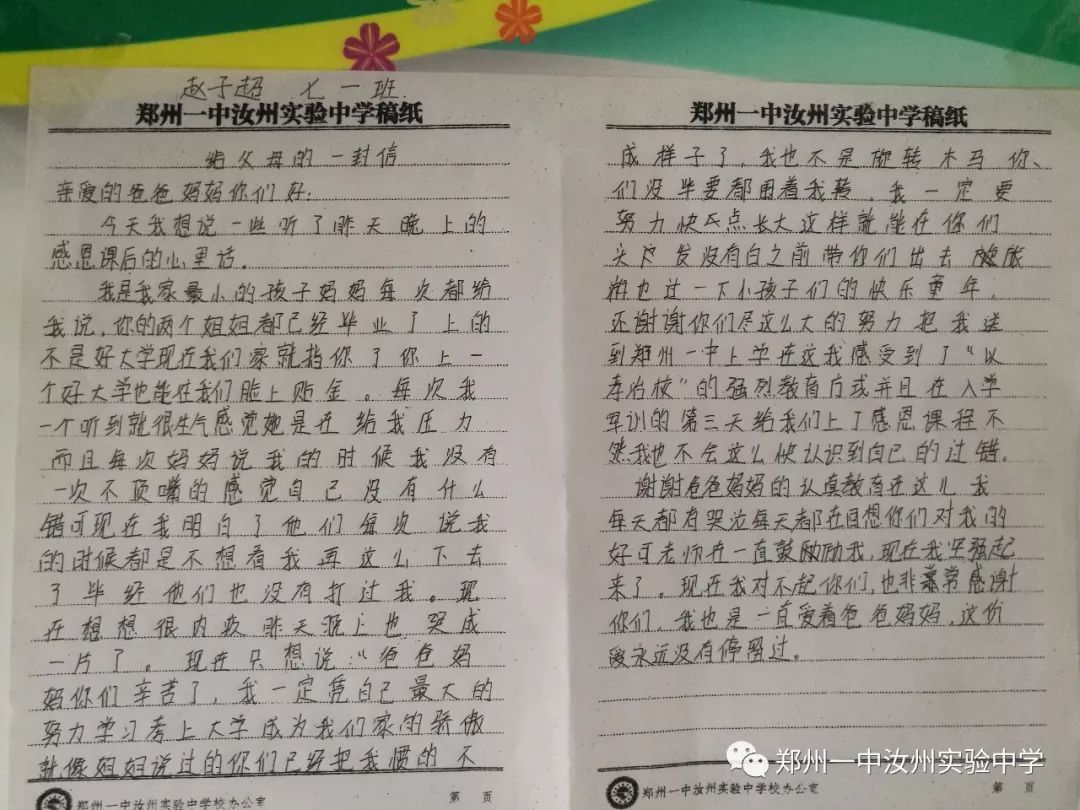 赵子超 七一班
郑州一中汝州实验中学稿纸
给父母的一封信
亲爱的爸爸妈妈你们好：
今天我想说一些听了昨天晚上的
感恩课后的心里话。
我是我家最小的孩子妈妈每次都给
我说，你的两个姐姐都已经毕业了上的
不是好大学现在我们家就指你了你上一
个好大学也能在我们脸上贴金。每次我
一个听到就很生气感觉她是在给我压力
而且每次妈妈说我的时候我没有
一次不顶嘴的感觉自己没有什么
错可现在我明白了他们每次说我
的时候都是不想看我再这么下去
了毕经他们也没有打过我。现
在想想很内疚昨天晚上也哭成
一片了。现在只想说：“爸爸妈
妈你们辛苦了，我一定凭自己最大的
努力学习考上大学成为我们家的骄傲
就像姐姐说过的你们已经把我惯的不
郑州一中汝州实验中学校办公室
第 页
郑州一中汝州实验中学稿纸
成样子了，我也不是旋转木马你、
们没毕要都围着我转，我一定要
努力快点长大这样就能在你们
头发没有白之前带你们出去旅
游也过一下小孩子们的快乐童年，
还谢谢你们尽这么大的努力把我送
到郑州一中上学在这我感受到了“以
孝治校”的强烈教育方式并且在入学
军训的第三天给我们上了感恩课程不
然我也不会这么快认识到自己的过错。
谢谢爸爸妈妈的认真教育在这儿我
每天都有哭泣每天都在回想你们对我的
好可老师在一直鼓励我，现在我坚强起
来了。现在我对不起你们，也非常感谢
你们，我也是一直爱着爸爸妈妈，这份
爱永远没有停留过。
郑州一中汝州实验中学校办公室
第 页
郑州一中汝州实验中学